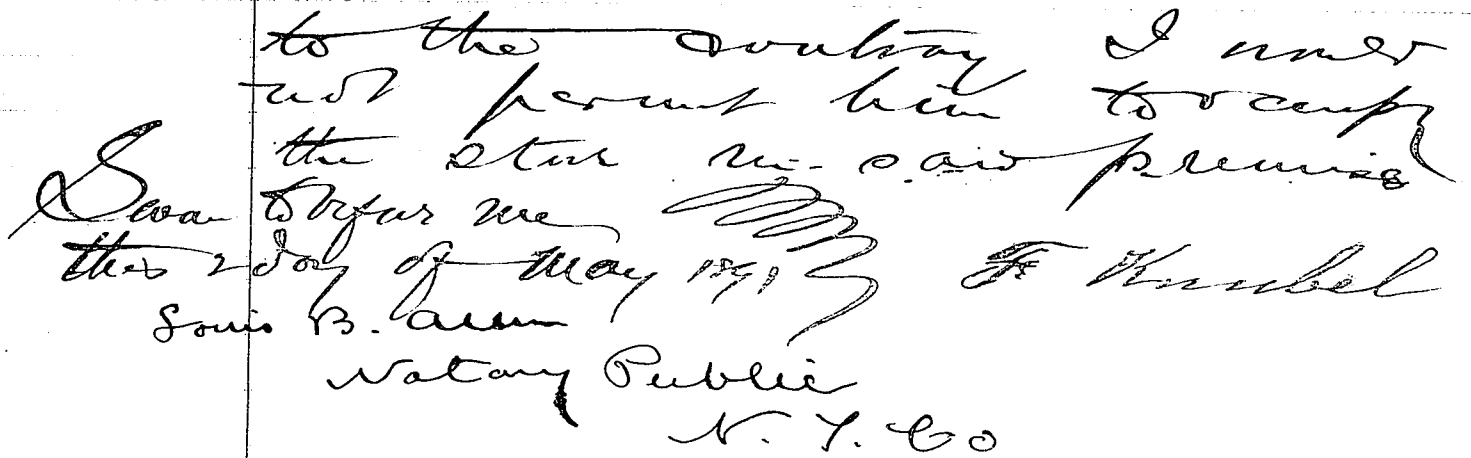 to the contrary I would
not permit him to occupy
the store in said premises
Sworn to before me
this 2 day of May 1891 F Knubel
Louis B.
Notary Public
N. Y. Co